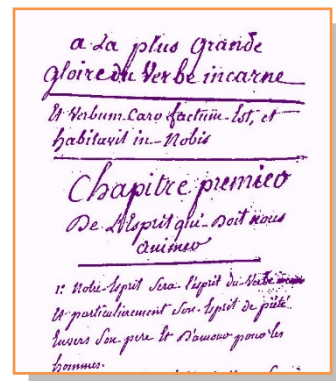 a La plus Grande
gloire du Verbe incarne
Et Verbum Caro factum Est, et
habitavit in Nobis
Chapitre premier
De L'Esprit qui Doit nous
animer
1º Notre Esprit Sera l'esprit du Verbe
Et particulierement Son Esprit de piété
Envers Son pere Et D'amour pour les
hommes.